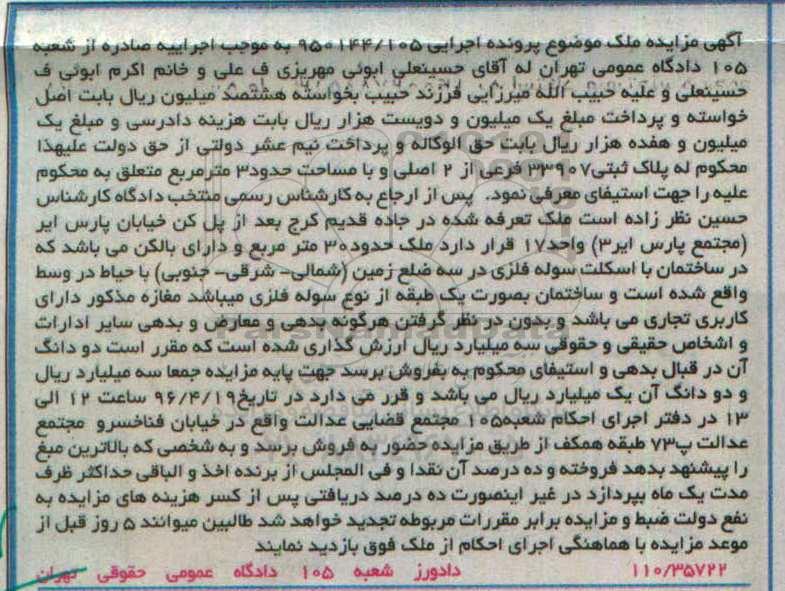 آگهی مزایده ملک موضوع پرونده اجرایی ۹۵۰۱۴۴/۱۰۵ به موجب اجراییه صادره از شعبه
۱۰۵ دادگاه عمومی تهران له آقای حسینعلی ابوئی مهریزی ف علی و خانم اکرم ابوئی ف
حسینعلی و علیه حبیب الله میرزایی فرزند حبیب بخواسته هشتصد میلیون ریال بابت اصل
خواسته و پرداخت مبلغ یک میلیون و دویست هزار ریال بابت هزینه دادرسی و مبلغ یک
میلیون و هفده هزار ریال بابت حق الوکاله و پرداخت نیم عشر دولتی از حق دولت علیهذا
محکوم له پلاک ثبتی۳۳۹۰۷ فرعی از ۲ اصلی و با مساحت حدود۳ مترمربع متعلق به محکوم
علیه را جهت استیفای معرفی نمود. پس از ارجاع به کارشناس رسمی منتخب دادگاه کارشناس
حسین نظر زاده است ملک تعرفه شده در جاده قدیم کرج بعد از پل کن خیابان پارس ایر
(مجتمع پارس ایر۳) واحد۱۷ قرار دارد ملک حدود۳۰ متر مربع و دارای بالکن می باشد که
در ساختمان با اسکلت سوله فلزی در سه ضلع زمین (شمالی- شرقی- جنوبی) با حیاط در وسط
واقع شده است و ساختمان بصورت یک طبقه از نوع سوله فلزی میباشد مغازه مذکور دارای
کاربری تجاری می باشد و بدون در نظر گرفتن هرگونه بدهی و معارض و بدهی سایر ادارات
و اشخاص حقیقی و حقوقی سه میلیارد ریال ارزش گذاری شده است که مقرر است دو دانگ
آن در قبال بدهی و استیفای محکوم به بفروش برسد جهت پایه مزایده جمعا سه میلیارد ریال
و دو دانگ آن یک میلیارد ریال می باشد و قرر می دارد در تاریخ۹۶/۴/۱۹ ساعت ۱۲ الی
۱۳ در دفتر اجرای احکام شعبه۱۰۵ مجتمع قضایی عدالت واقع در خیابان فناخسرو مجتمع
عدالت پ۷۳ طبقه همکف از طریق مزایده حضور به فروش برسد و به شخصی که بالاترین مبغ
را پیشنهد بدهد فروخته و ده درصد آن نقدا و فی المجلس از برنده اخذ و الباقی حداکثر ظرف
مدت یک ماه بپردازد در غیر اینصورت ده درصد دریافتی پس از کسر هزینه های مزایده به
نفع دولت ضبط و مزایده برابر مقررات مربوطه تجدید خواهد شد طالبین میوانند ۵ روز قبل از
موعد مزایده با هماهنگی اجرای احکام از ملک فوق بازدید نمایند
۱۱۰/۳۵۷۲۲ دادورز شعبه ۱۰۵ دادگاه عمومی حقوقی تهران